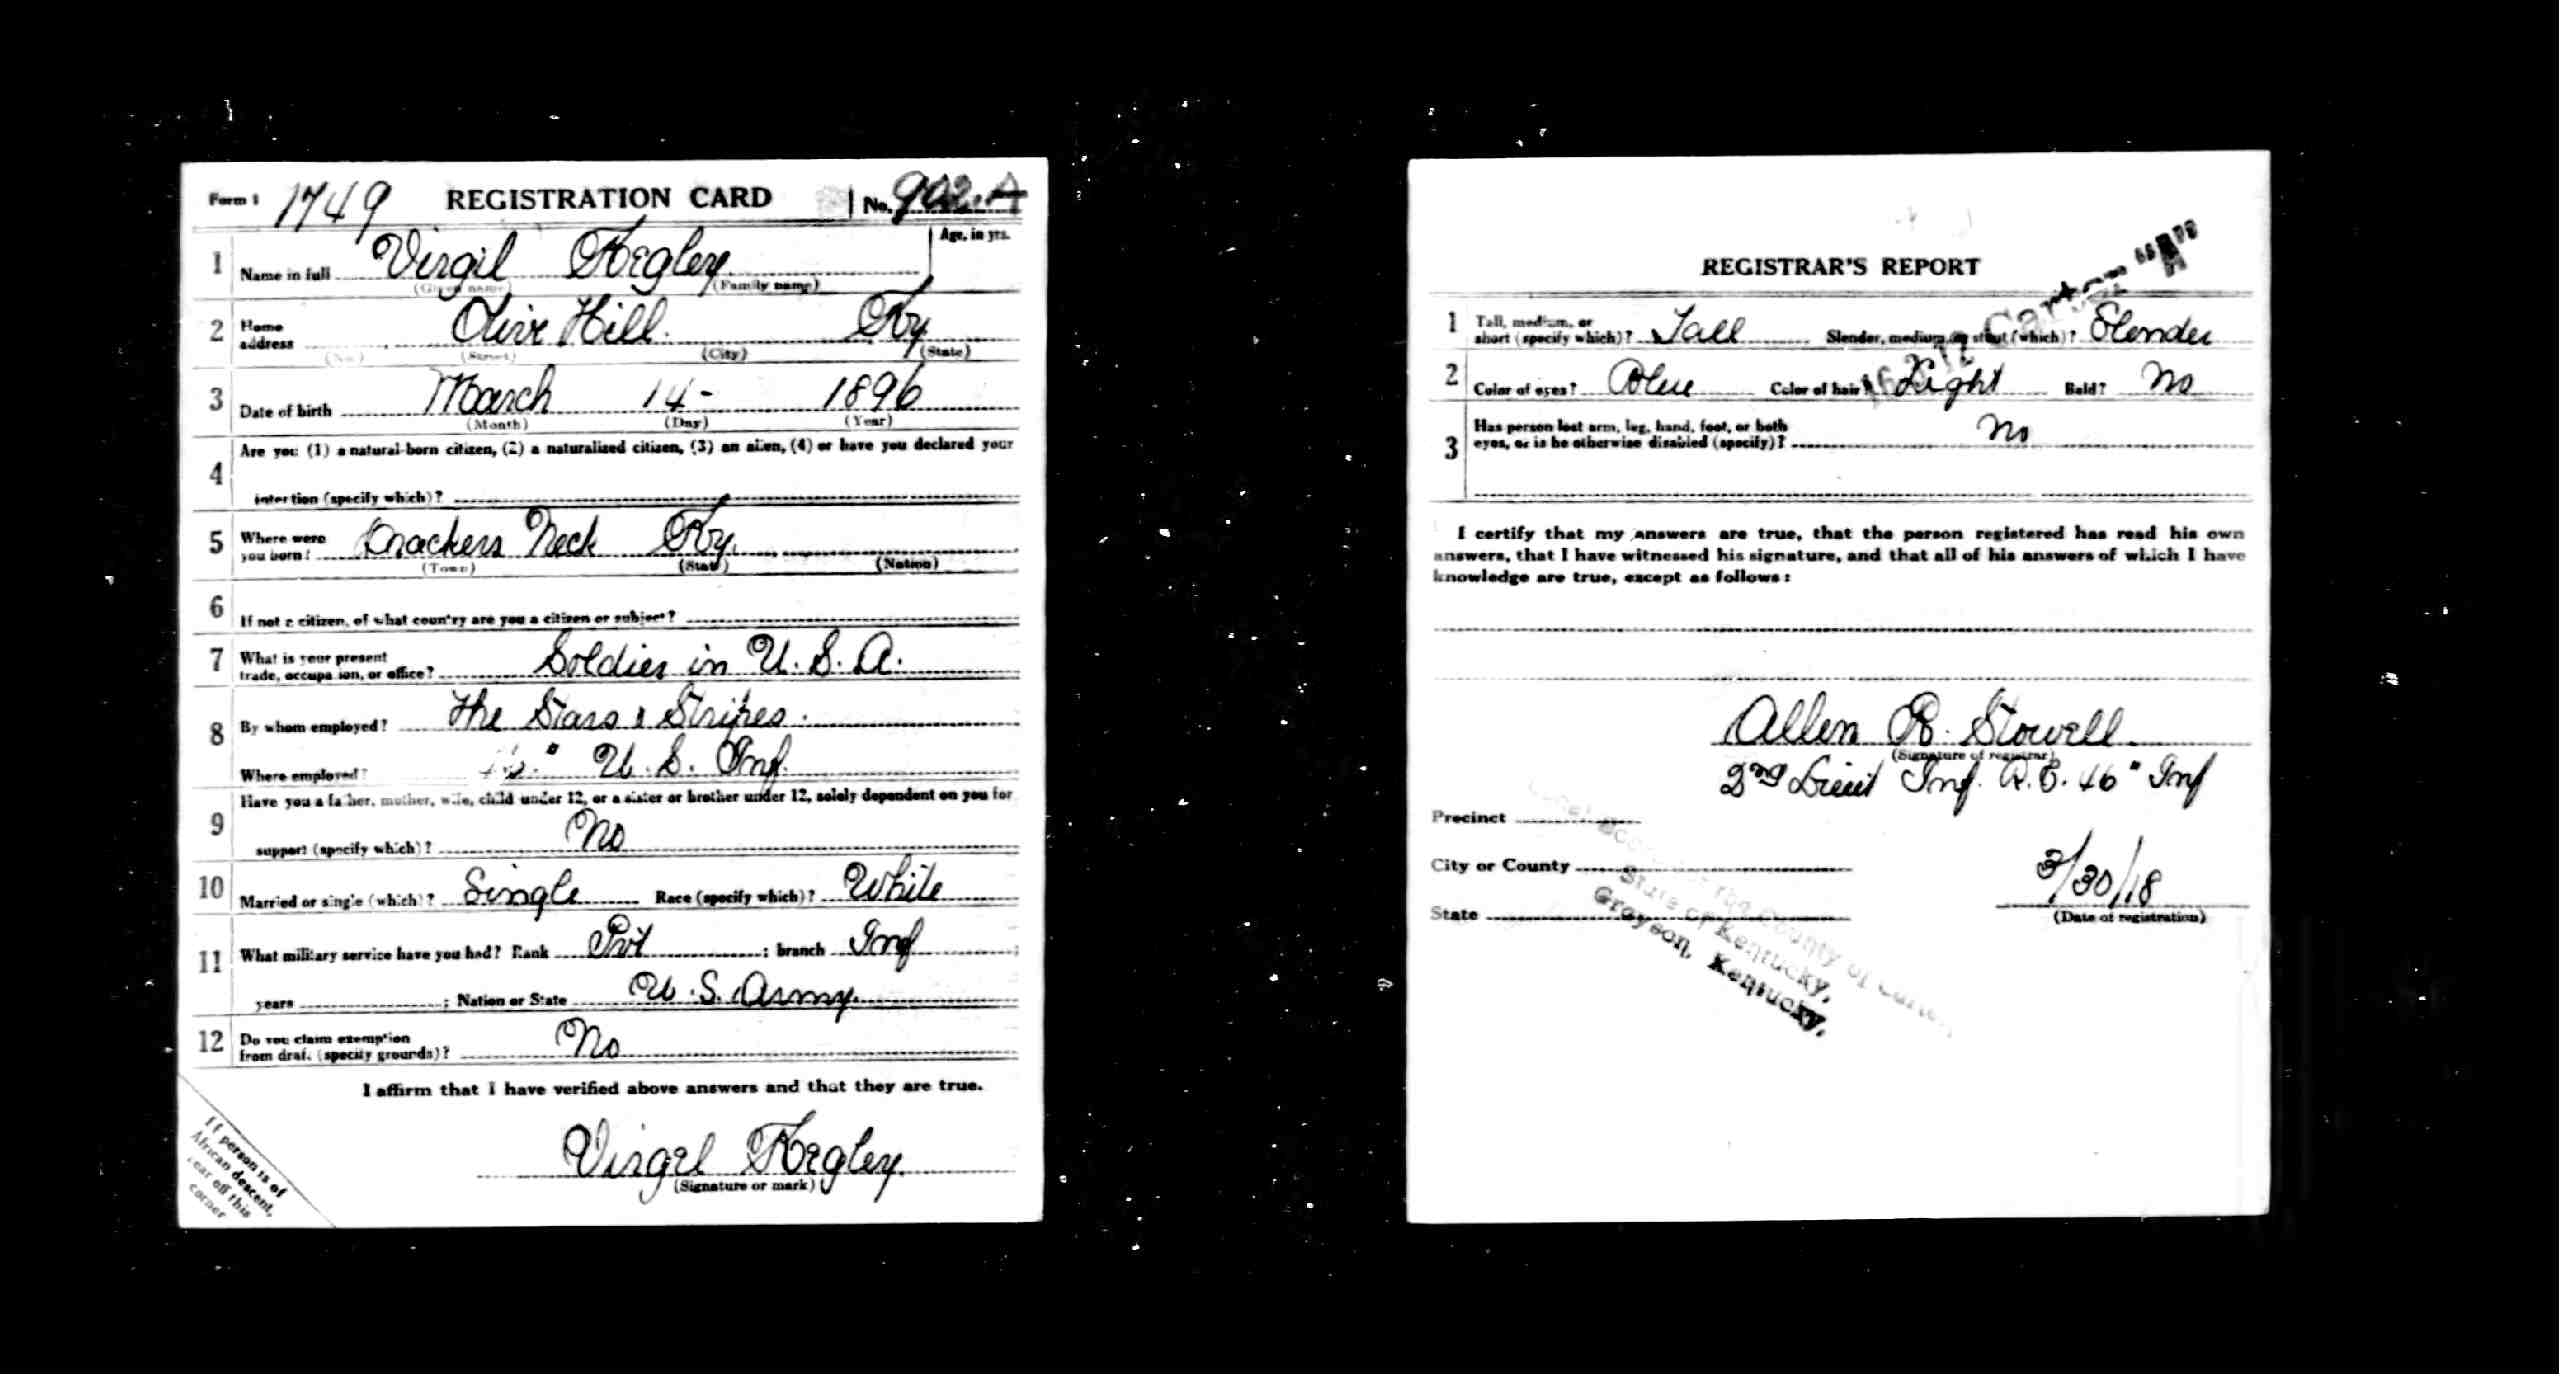 Form 1 1749 REGISTRATION CARD No. 902.A
Age, in yrs.
1 Name in full Virgil Kegley
(Given name) (Family name)
2 Home address Olive Hill. Ky.
(No.) (Street) (City) (State)
3 Date of birth March 14- 1896
(Month) (Day) (Year)
4 Are you (1) a natural-born citizen, (2) a naturalized citizen, (3) an alien, (4) or have you declared your
intention (specify which)?
5 Where were you born? Crackers Neck Ky.
(Town) (State) (Nation)
6 If not a citizen, of what country are you a citizen or subject?
7 What is your present trade, occupation, or office? Soldier in U. S. A.
8 By whom employed? The Stars & Stripes.
Where employed? 46" U. S. Inf.
Have you a father, mother, wife, child under 12, or a sister or brother under 12, solely dependent on you for
9 support (specify which)? No
10 Married or single (which)? Single Race (specify which)? White
11 What military service have you had? Rank Pvt ; branch Inf ;
years ; Nation or State U. S. Army.
12 Do you claim exemption from draft (specify grounds)? No
I affirm that I have verified above answers and that they are true.
Virgil Kegley.
(Signature or mark)
If person is of
African descent,
tear off this
corner
REGISTRAR'S REPORT
Carter "A"
1 Tall, medium, or short (specify which)? Tall Slender, medium, or stout (which)? Slender
2 Color of eyes? Blue Color of hair? Light Bald? No
3 Has person lost arm, leg, hand, foot, or both
eyes, or is he otherwise disabled (specify)? No
I certify that my answers are true, that the person registered has read his own
answers, that I have witnessed his signature, and that all of his answers of which I have
knowledge are true, except as follows:
Allen R. Stowell.
(Signature of registrar)
2nd Lieut Inf. R. C. 46" Inf
Precinct
City or County
State
3/30/18
(Date of registration)
for the County of Carter,
State of Kentucky,
Grayson, Kentucky,